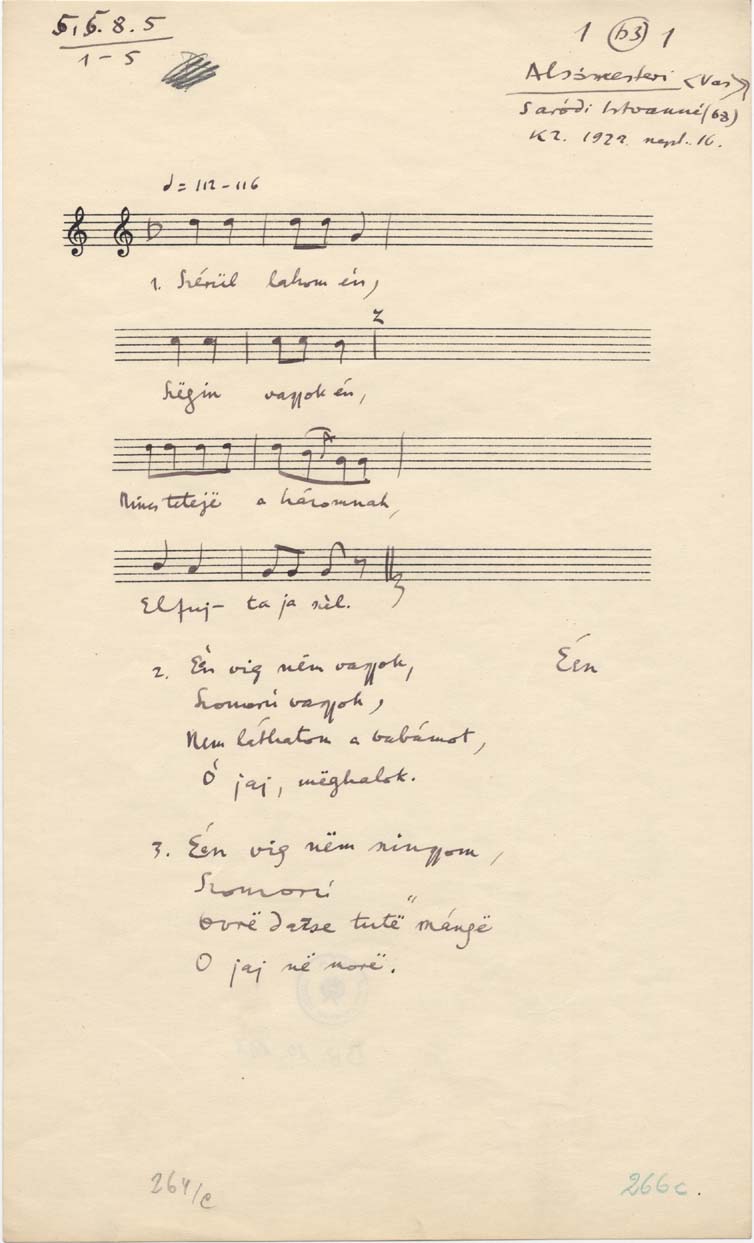 5, 5. 8. 5
1 – 5
1 (b3) 1
Alsómesteri <Vas>
Saródi Istvanné (68)
KZ. 1922. szept. 16.
= 112 – 116
1. Szérül lakom én,
2
Szëgin vagyok én,
Nincs tetejë a háromnak,
El fuj– ta ja szél.
2. Één vig nëm vagyok,
Één
Szomorú vagyok,
Nem láthatom a babámot,
Ó jaj, mëghalok.
3. Één vig nëm
Szomorú
tutë mángë
O jaj në morë.
264/c
266c.